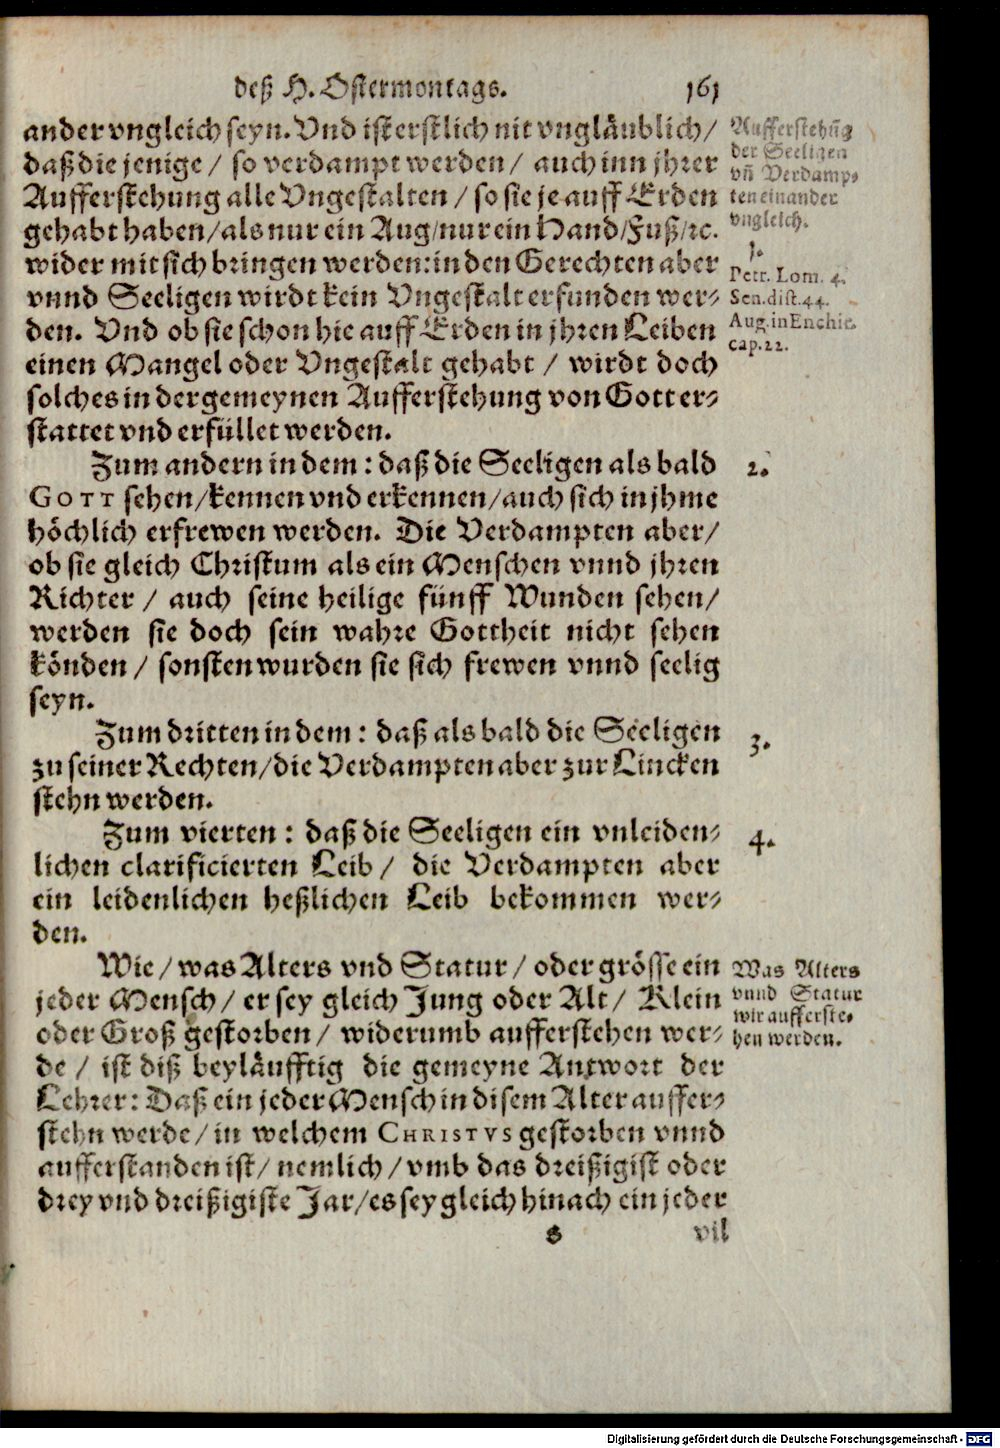 deß H. Ostermontags. 161
ander vngleich seyn. Vnd ist erstlich nit vngläublich/
daß die jenige / so verdampt werden / auch inn jhrer
Aufferstehung alle Vngestalten / so sie je auff Erden
gehabt haben/als nur ein Aug/nur ein Hand/Fuß/rc.
wider mit sich bringen werden: in den Gerechten aber
vnnd Seeligen wirdt kein Vngestalt erfunden wer-
den. Vnd ob sie schon hie auff Erden in jhren Leiben
einen Mangel oder Vngestalt gehabt / wirdt doch
solches in der gemeynen Aufferstehung von Gott er-
stattet vnd erfüllet werden.
Aufferstehūg
der Seeligen
vñ Verdamp-
ten einander
vngleich.
1.
Petr. Lom. 4.
Sen. dist. 44.
Aug. in Enchir.
cap. 22.
Zum andern in dem : daß die Seeligen als bald
GOTT sehen/kennen vnd erkennen/auch sich in jhme
höchlich erfrewen werden. Die Verdampten aber/
ob sie gleich Christum als ein Menschen vnnd jhren
Richter / auch seine heilige fünff Wunden sehen/
werden sie doch sein wahre Gottheit nicht sehen
könden / sonsten wurden sie sich frewen vnnd seelig
seyn.
2.
Zum dritten in dem : daß als bald die Seeligen
zu seiner Rechten/die Verdampten aber zur Lincken
stehn werden.
3.
Zum vierten : daß die Seeligen ein vnleiden-
lichen clarificierten Leib / die Verdampten aber
ein leidenlichen heßlichen Leib bekommen wer-
den.
4.
Wie / was Alters vnd Statur / oder grösse ein
jeder Mensch / er sey gleich Jung oder Alt / Klein
oder Groß gestorben / widerumb aufferstehen wer-
de / ist diß beyläufftig die gemeyne Antwort der
Lehrer: Daß ein jeder Mensch in disem Alter auffer-
stehn werde / in welchem CHRISTVS gestorben vnnd
aufferstanden ist/ nemlich / vmb das dreißigist oder
drey vnd dreißigiste Jar/es sey gleich hinach ein jeder
Was Alters
vnnd Statur
wir aufferste-
hen werden.
vil
Digitalisierung gefördert durch die Deutsche Forschungsgemeinschaft - DFG